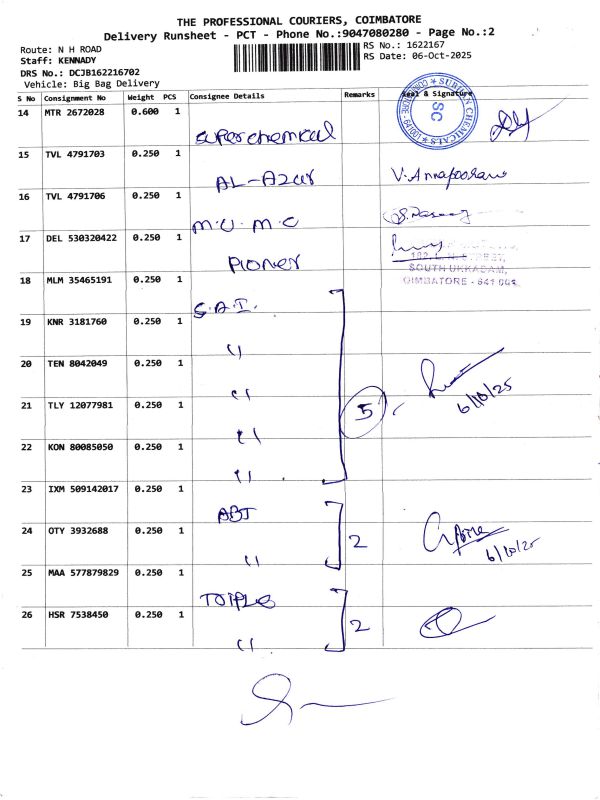 THE PROFESSIONAL COURIERS, COIMBATORE
Delivery Runsheet - PCT - Phone No.:9047080280 - Page No.:2
Route: N H ROAD
RS No.: 1622167
Staff: KENNADY
RS Date: 06-Oct-2025
DRS No.: DCJB162216702
Vehicle: Big Bag Delivery
S No Consignment No Weight PCS Consignee Details Remarks Seal & Signature
14 MTR 2672028 0.600 1
Super chemical
SC
15 TVL 4791703 0.250 1
AL-Azar
16 TVL 4791706 0.250 1
M.U.M.C
17 DEL 530320422 0.250 1
Pioneer
SOUTH UKKADAM,
18 MLM 35465191 0.250 1
S.A.I.
19 KNR 3181760 0.250 1
"
20 TEN 8042049 0.250 1
"
21 TLY 12077981 0.250 1
" 5 6/10/25
22 KON 80085050 0.250 1
"
23 IXM 509142017 0.250 1
ABT
24 OTY 3932688 0.250 1
" 2 6/10/25
25 MAA 577879829 0.250 1
26 HSR 7538450 0.250 1
" 2